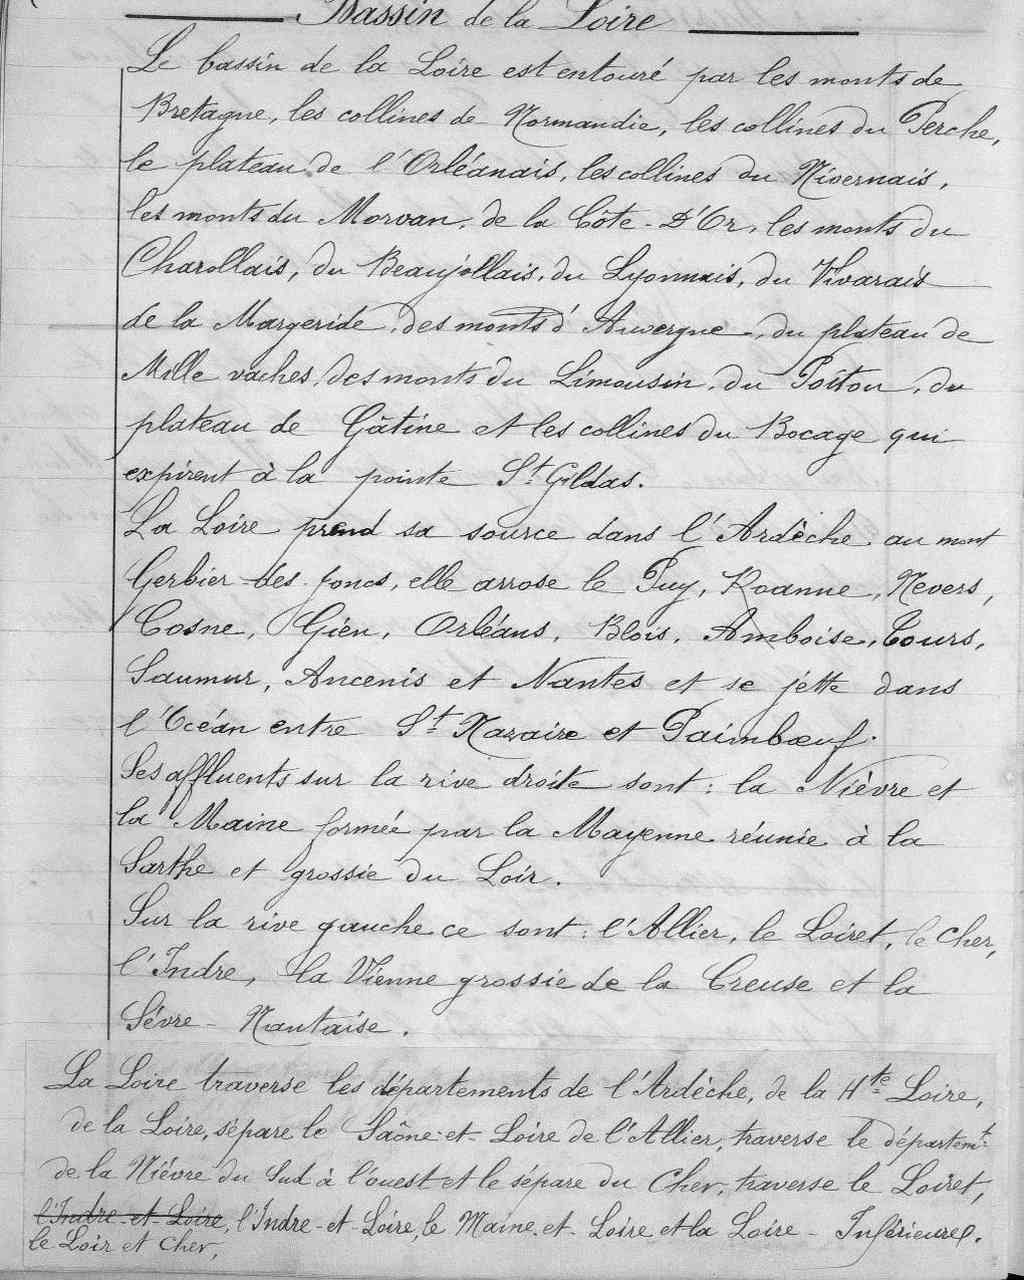 Bassin de la Loire
Le bassin de la Loire est entouré par les monts de
Bretagne, les collines de Normandie, les collines du Perche,
le plateau de l'Orléanais, les collines du Nivernais,
les monts du Morvan, de la Côte-D'Or, les monts du
Charollais, du Beaujollais, du Lyonnais, du Vivarais
de la Margeride, des monts d'Auvergne, du plateau de
Mille vaches, des monts du Limousin, du Poitou, du
plateau de Gâtine et les collines du Bocage qui
expirent à la pointe St Gildas.
La Loire prend sa source dans l'Ardèche au mont
Gerbier des joncs, elle arrose le Puy, Roanne, Nevers,
Cosne, Gien, Orléans, Blois, Amboise, Tours,
Saumur, Ancenis et Nantes et se jette dans
l'Océan entre St Nazaire et Paimbœuf.
Ses affluents sur la rive droite sont : la Nièvre et
la Maine formée par la Mayenne réunie à la
Sarthe et grossie du Loir.
Sur la rive gauche ce sont : l'Allier, le Loiret, le Cher,
l'Indre, la Vienne grossie de la Creuse et la
Sévre-Nantaise.
La Loire traverse les départements de l'Ardèche, de la Hte Loire,
de la Loire, sépare le Saône-et-Loire de l'Allier, traverse le départemt
de la Nièvre du Sud à l'ouest et le sépare du Cher, traverse le Loiret,
l'Indre-et-Loire, l'Indre-et-Loire, le Maine-et-Loire et la Loire-Inférieure.
le Loir et Cher,